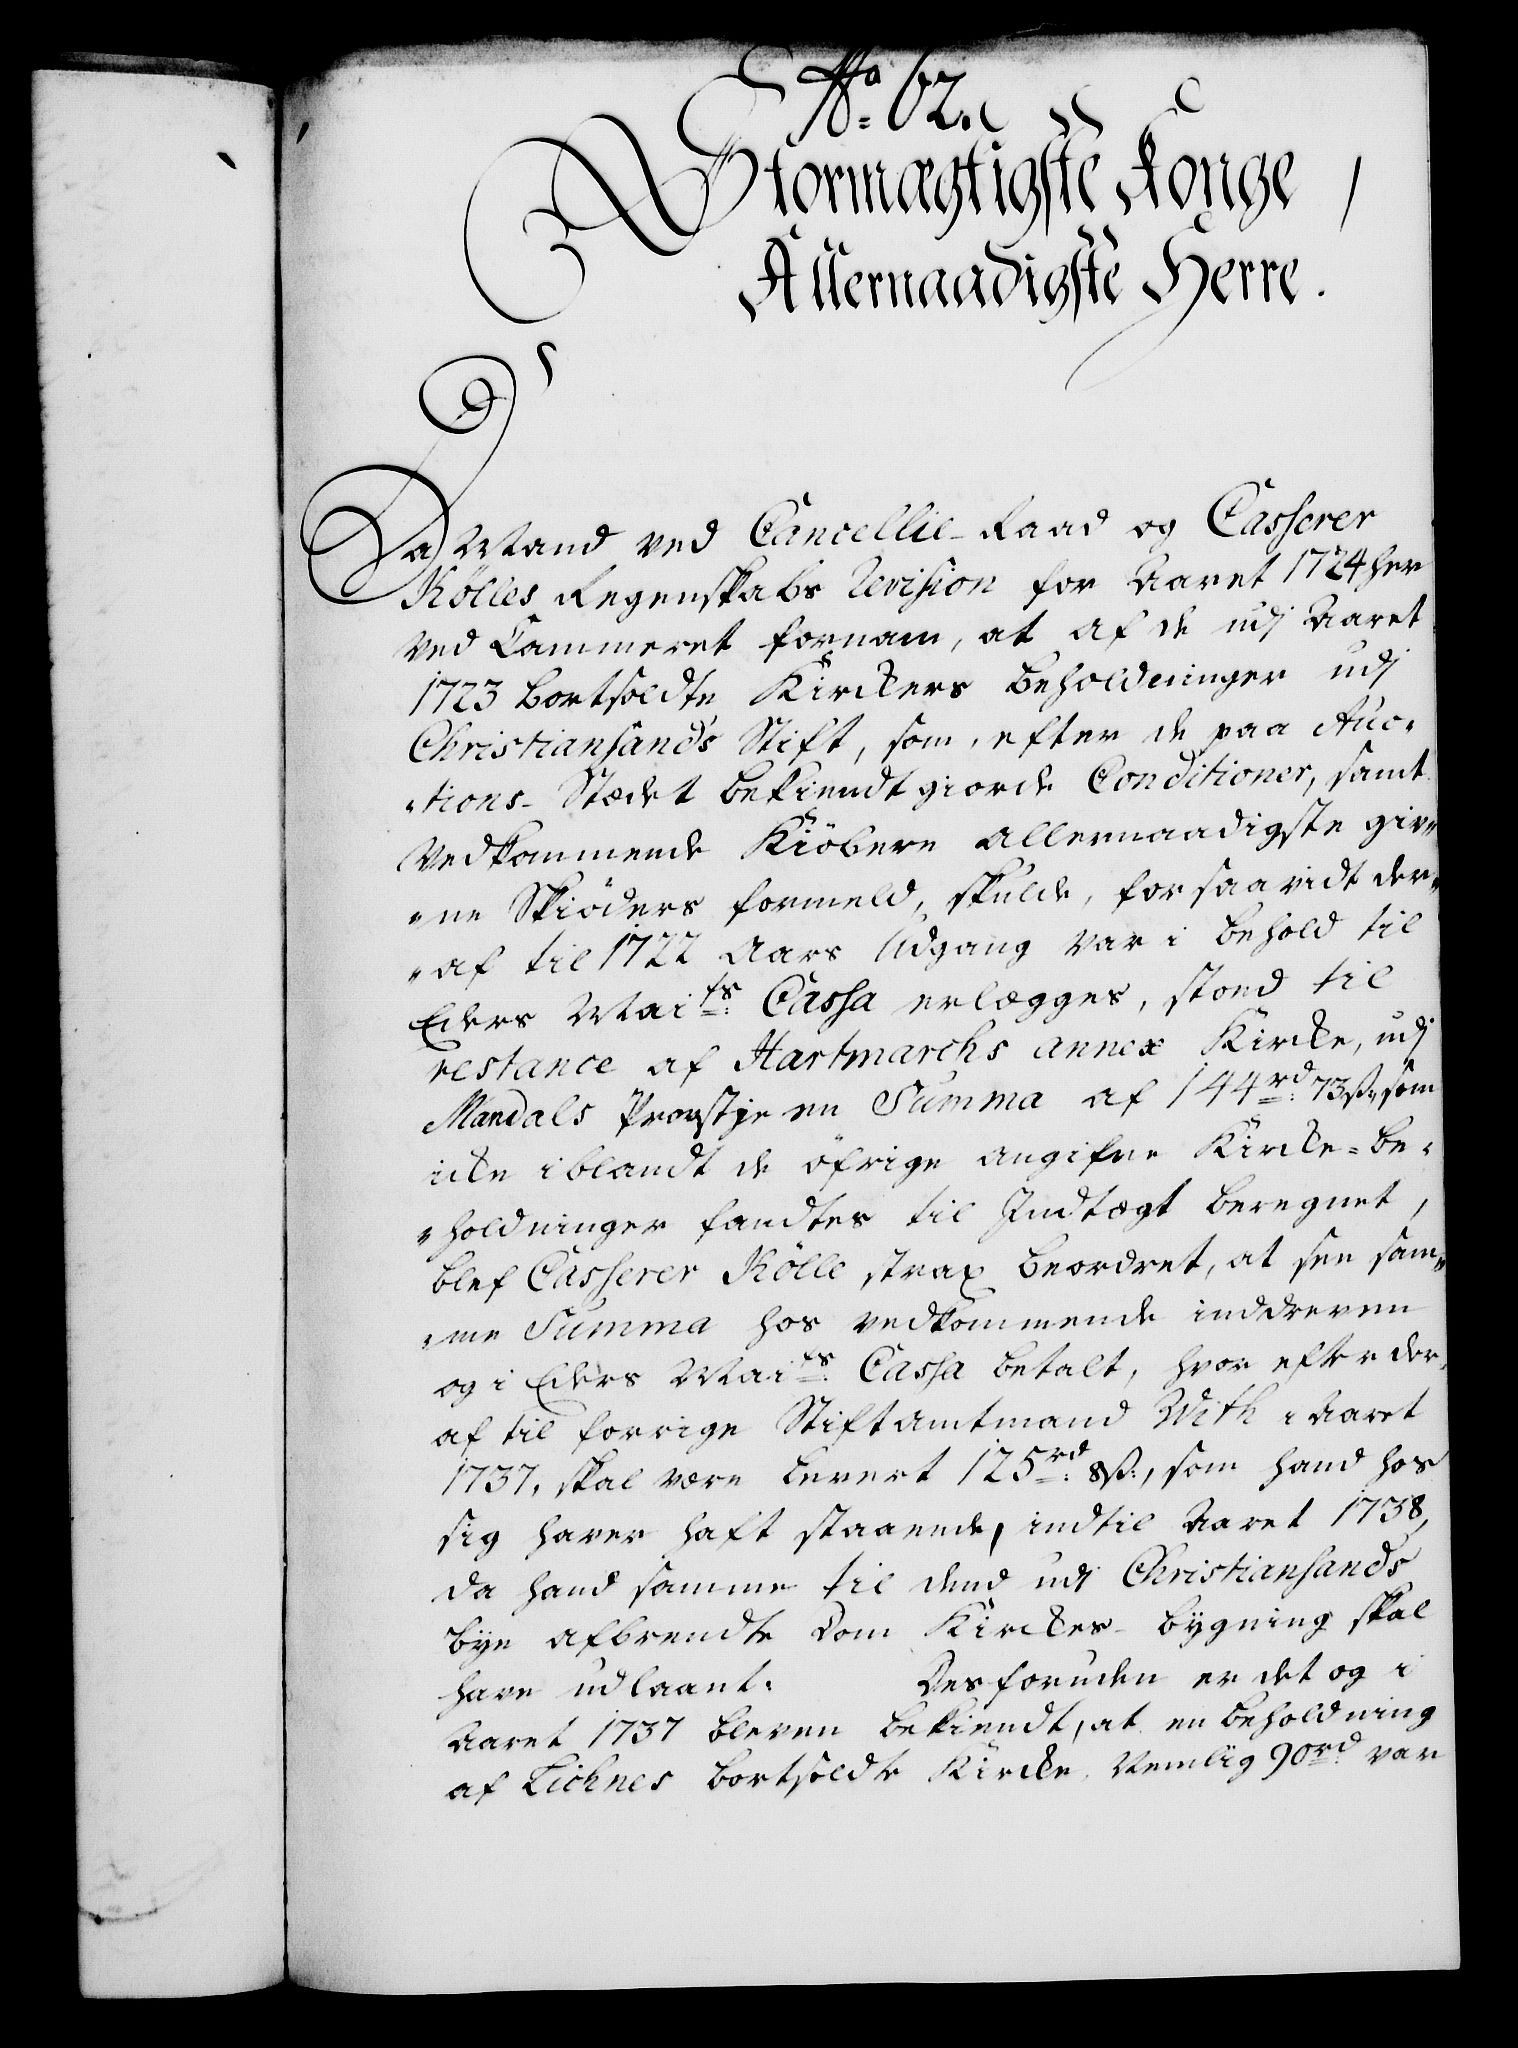 No. 62.
Stormægtigste Konge
Allernaadigste Herre.
Da Mand ved Cancellie-Raad og Casserer
Rölles Regenskabs Revision for Aaret 1724 her
ved Cammeret fornam, at af de udj Aaret
1723 bortsoldte Kirckers beholdninger udj
Christiansands Stift, som, efter de paa Auc-
tions-Stædet bekiendtgiorde Conditioner, samt
Vedkommende Kiöbere allernaadigste giv-
ne Skiöders formeld, skulde, forsaavidt der-
af til 1722 Aars Udgang var i behold til
Eders Maits Cassa erlægges, stoed til
restance af Hartmarchs annex Kircke, udj
Mandals Provstje en Summa af 144rd: 73ß, som
icke iblandt de öfrige angifne Kircke-be-
holdninger fandtes til Indtægt beregnet,
blef Casserer Rölle strax beordret, at see sam-
me Summa hos vedkommende inddreven
og i Eders Maits Cassa betalt, hvor efter der-
af til forrige Stiftamtmand With i Aaret
1737, skal være leveret 125rd: 8ß:, som hand hos
sig haver haft staaende, indtil Aaret 1738,
da hand samme til dend udj Christiansands
bye afbrendte Dom Kirckes-bygning skal
have udlaant. Desforuden er det og i
Aaret 1737 bleven bekiendt, at en beholdning
af Lichnes bortsoldte Kircke, Nemlig 90rd: var